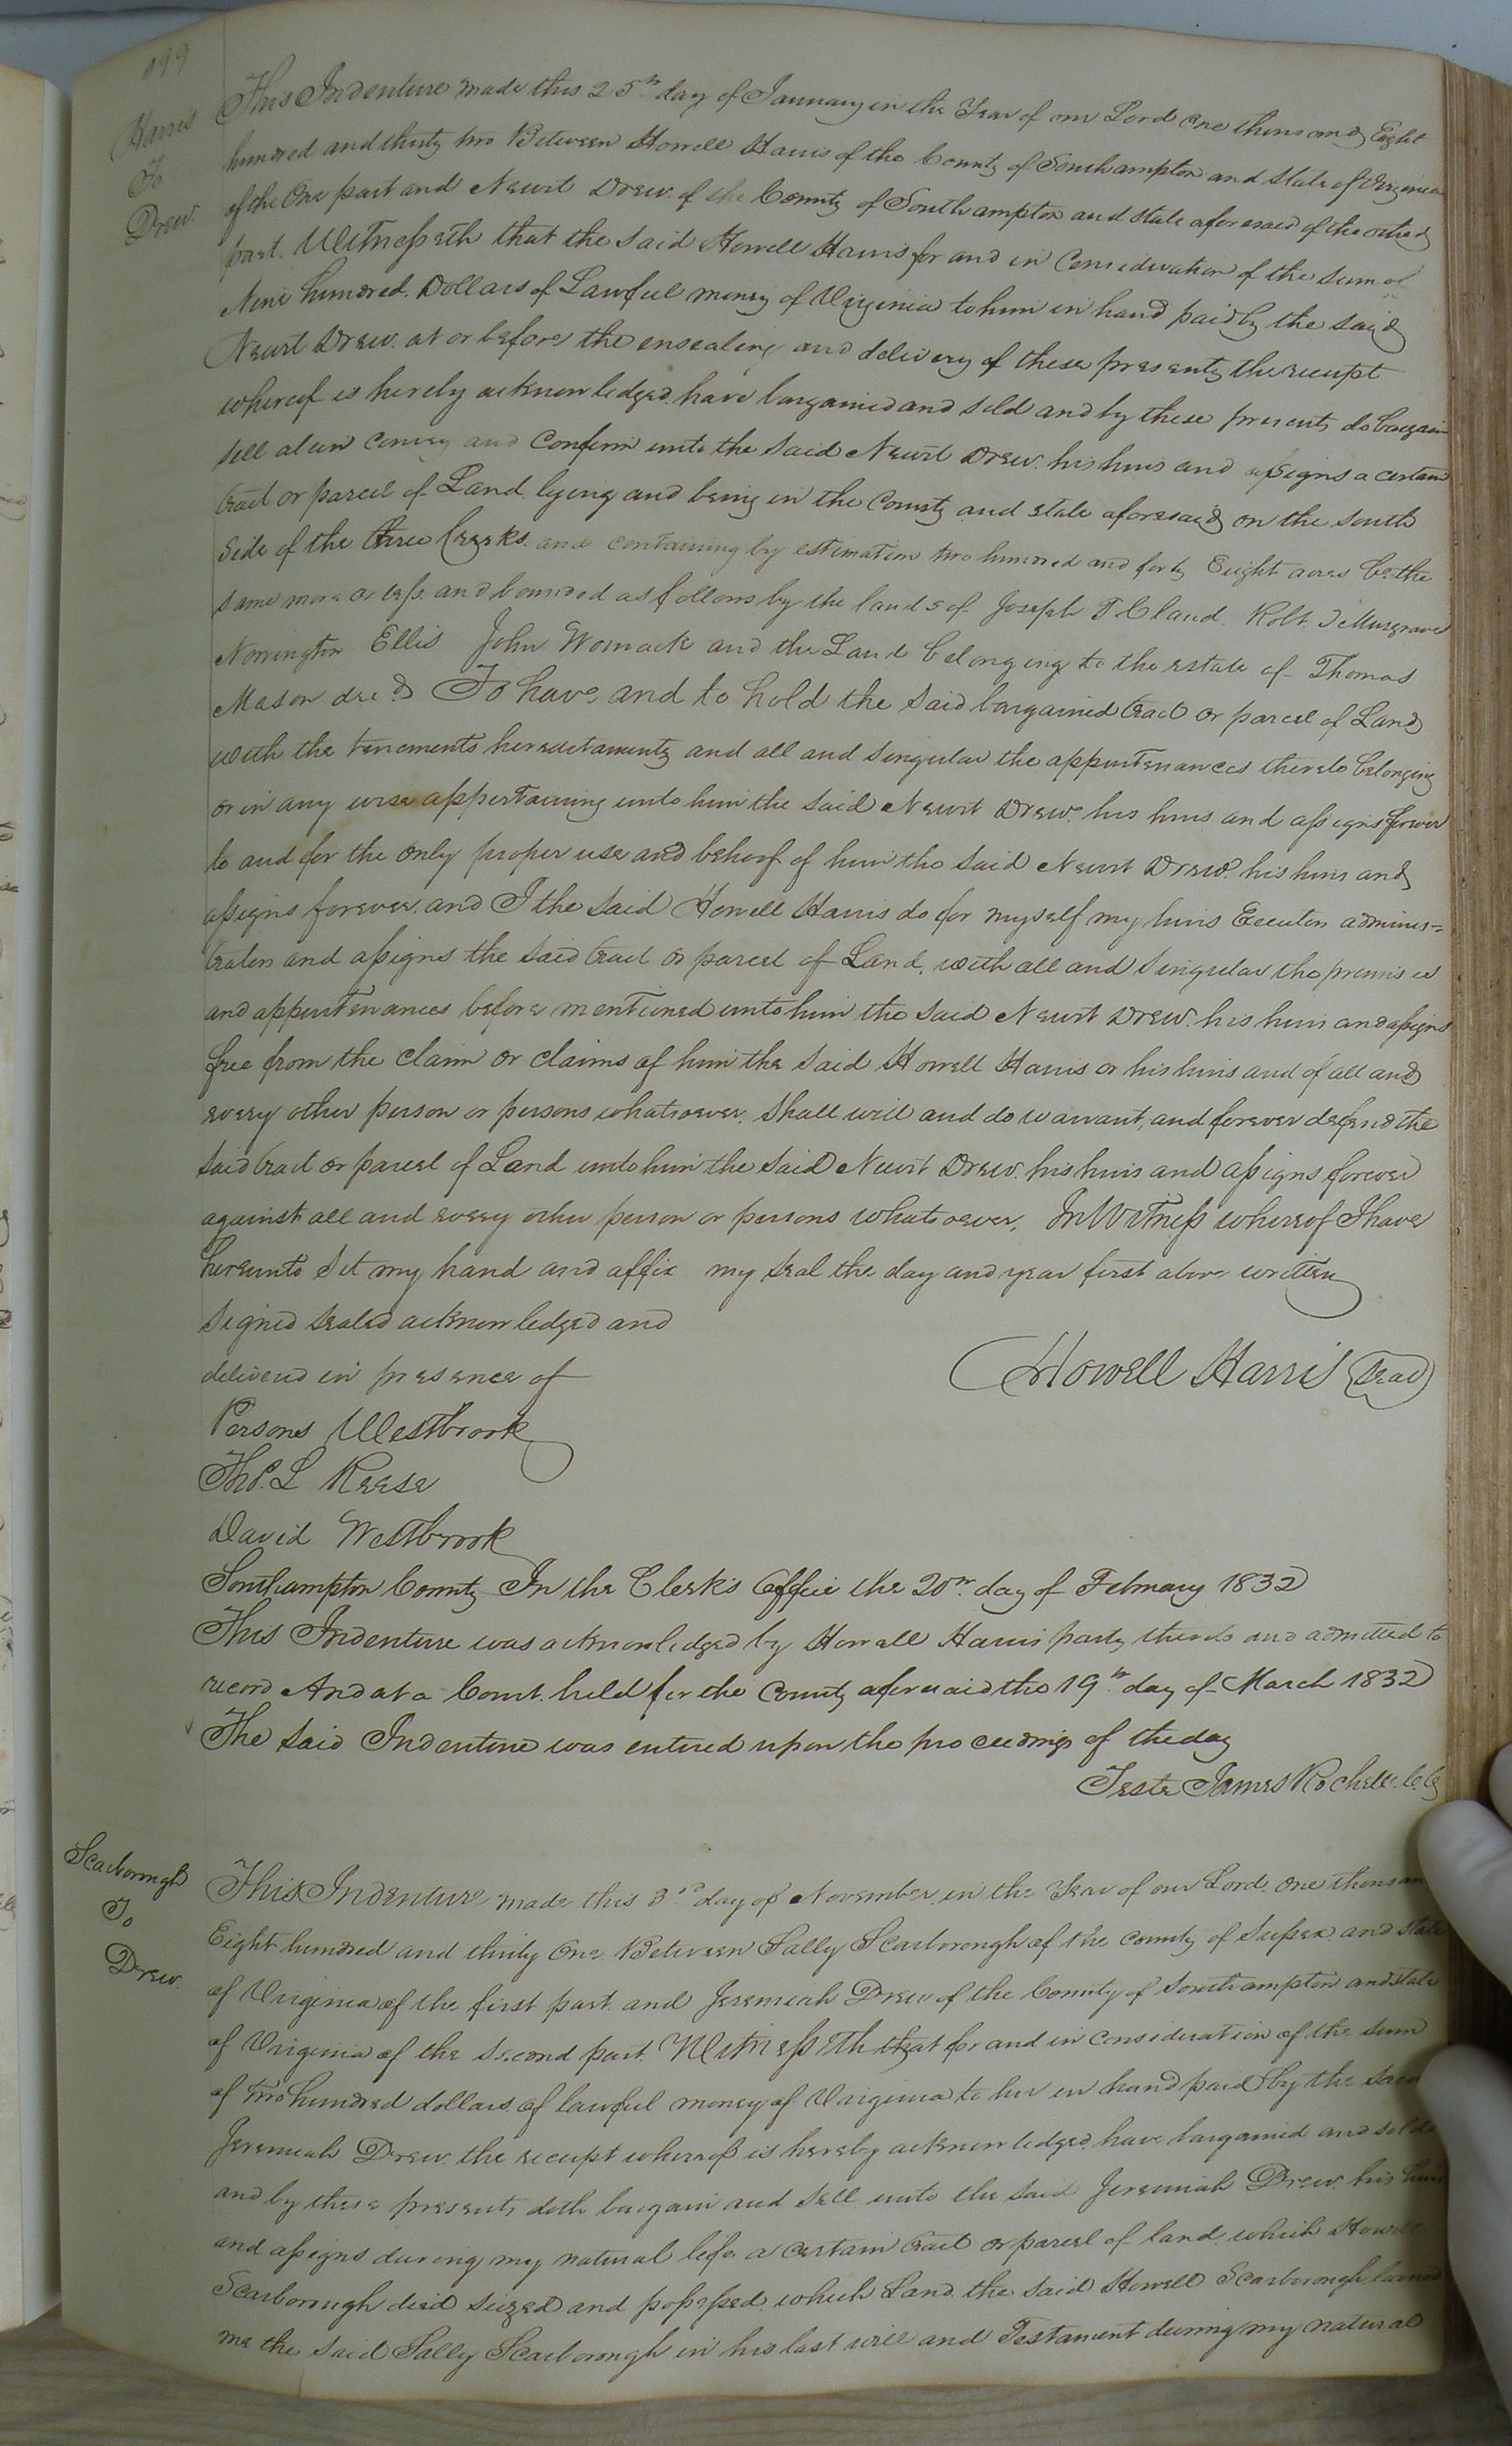 199
Harris
To
Drew.
This Indenture made this 25th day of January in the Year of our Lord One thousand Eight
hundred and thirty two Between Howell Harris of the County of Southampton and State of Virginia
of the One part and Newit Drew. of the County of Southampton and State aforesaid of the other
part. Witnesseth that the said Howell Harris for and in Consideration of the sum of
Nine hundred. Dollars of Lawful money of Virginia to him in hand paid by the said
Newit Drew. at or before the ensealing and delivery of these presents, the receipt
whereof is hereby acknowledged, have bargained and sold and by these presents do bargain
sell alien convey and Confirm unto the said Newit Drew. his heirs and assigns a certain
tract or parcel of Land. lying and being in the County and state aforesaid on the South
side of the three Creeks. and containing by estimation two hundred and forty Eight acres be the
same more or less. and bounded as follows by the lands of Joseph T Claud. Robt. J Musgrave
Norrington Ellis John Womack and the Land belonging to the estate of Thomas
Mason decd. To have and to hold the said bargained tract or parcel of Land
with the tenements hereditaments and all and singular the appurtenances thereto belonging
or in any wise appertaining unto him the said Newit Drew. his heirs and assigns forever
to and for the only proper use and behoof of him the said Newit Drew. his heirs and
assigns forever. and I the said Howell Harris do for myself my heirs Executors adminis=
trators and assigns the said tract or parcel of Land, with all and singular the premises
and appurtenances before mentioned unto him the said Newit Drew. his heirs and assigns
free from the claim or claims of him the said Howell Harris or his heirs and of all and
every other person or persons whatsoever, shall will and do warrant, and forever defend the
said tract or parcel of Land unto him the said Newit Drew. his heirs and assigns forever
against all and every other person or persons whatsoever. In Witness whereof I have
hereunto Set my hand and affix my seal the day and year first above written
Signed sealed acknowledged and
delivered in presence of
Howell Harris (Seal)
Persons Westbrook
Thos. L Reese
David Westbrook
Southampton County In the Clerk's Office the 20th day of February 1832
This Indenture was acknowledged by Howell Harris party thereto and admitted to
record And at a Court. held for the County aforesaid the 19th day of March 1832
The said Indenture was entered upon the proceedings of the day
Teste James Rochelle C.C.
Scarborough
To
Drew.
This Indenture made this 3rd day of November in the Year of our Lord. One thousan
Eight hundred and thirty One Between Sally Scarborough of the County of Sussex and State
of Virginia of the first part. and Jeremiah Drew of the County of Southampton and State
of Virginia of the second part. Witnesseth that for and in consideration of the sum
of two hundred dollars. of lawful money of Virginia to her in hand paid by the said
Jeremiah Drew. the receipt whereof is hereby acknowledged, have bargained and sold
and by these presents doth bargain and sell unto the said Jeremiah Drew. his heirs
and assigns during my natural life a certain tract or parcel of land. which Howell
Scarborough died seized and possessed. which Land. the said Howell Scarborough loaned
me the said Sally Scarborough in his last will and Testament during my natural